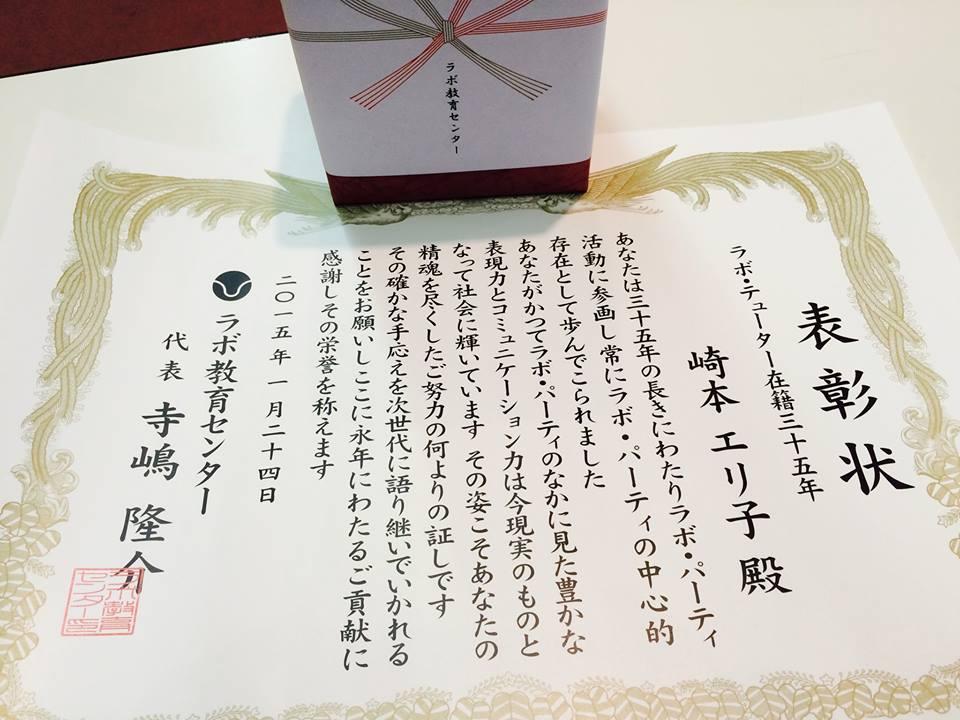 ラボ教育センター
表彰状
ラボ・テューター在籍三十五年
崎本 エリ子 殿
あなたは三十五年の長きにわたりラボ・パーティ
活動に参画し常にラボ・パーティの中心的
存在として歩んでこられました
あなたがかつてラボ・パーティのなかに見た豊かな
表現力とコミュニケーション力は今現実のものと
なって社会に輝いています その姿こそあなたの
精魂を尽くしたご努力の何よりの証しです
その確かな手応えを次世代に語り継いでいかれる
ことをお願いしここに永年にわたるご貢献に
感謝しその栄誉を称えます
二〇一五年一月二十四日
ラボ教育センター
代表 寺嶋 隆介